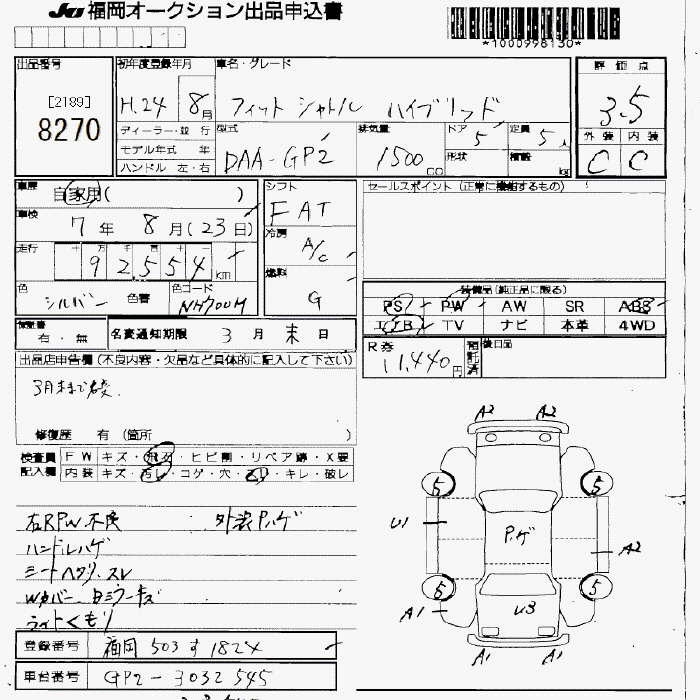 JU 福岡オークション出品申込書
*1000998130*
出品番号 初年度登録年月 車名・グレード 評価点
[2189]
8270
H.24 8月 フィットシャトル ハイブリッド 3.5
ディーラー・並行 型式 排気量 ドア 定員 外装 内装
モデル年式 年 DAA-GP2 1500cc 5 5人 C C
ハンドル 左・右 形状 積載 kg
車歴 自家用( ) シフト セールスポイント (正常に機能するもの)
FAT
車検 7年 8月(23日) 冷房
A/C
走行 十 万 千 百 十 一
92554km 燃料
G
色 シルバー 色替 色コード NH700M
装備品(純正品に限る)
PS PW AW SR ABS
エアB TV ナビ 本革 4WD
保証書 有・無 名変通知期限 3月末日
R券 11,440円 預託済 後日品
出品店申告欄(不良内容・欠品など具体的に記入して下さい)
3月末まで名変
修復歴 有 (箇所 )
検査員 FW キズ・飛石・ヒビ割・リペア跡・X要
記入欄 内装 キズ・汚レ・コゲ・穴・スレ・キレ・破レ
右RPW不良 外装Pハゲ
ハンドルハゲ
シートヘタリ、スレ
Wカバー、
ライトくもり
登録番号 福岡 503 す 1824
車台番号 GP2-3032545
A2 A2
5 5
U1 P.ゲ A2
5 5
A1 U3
A1 A1